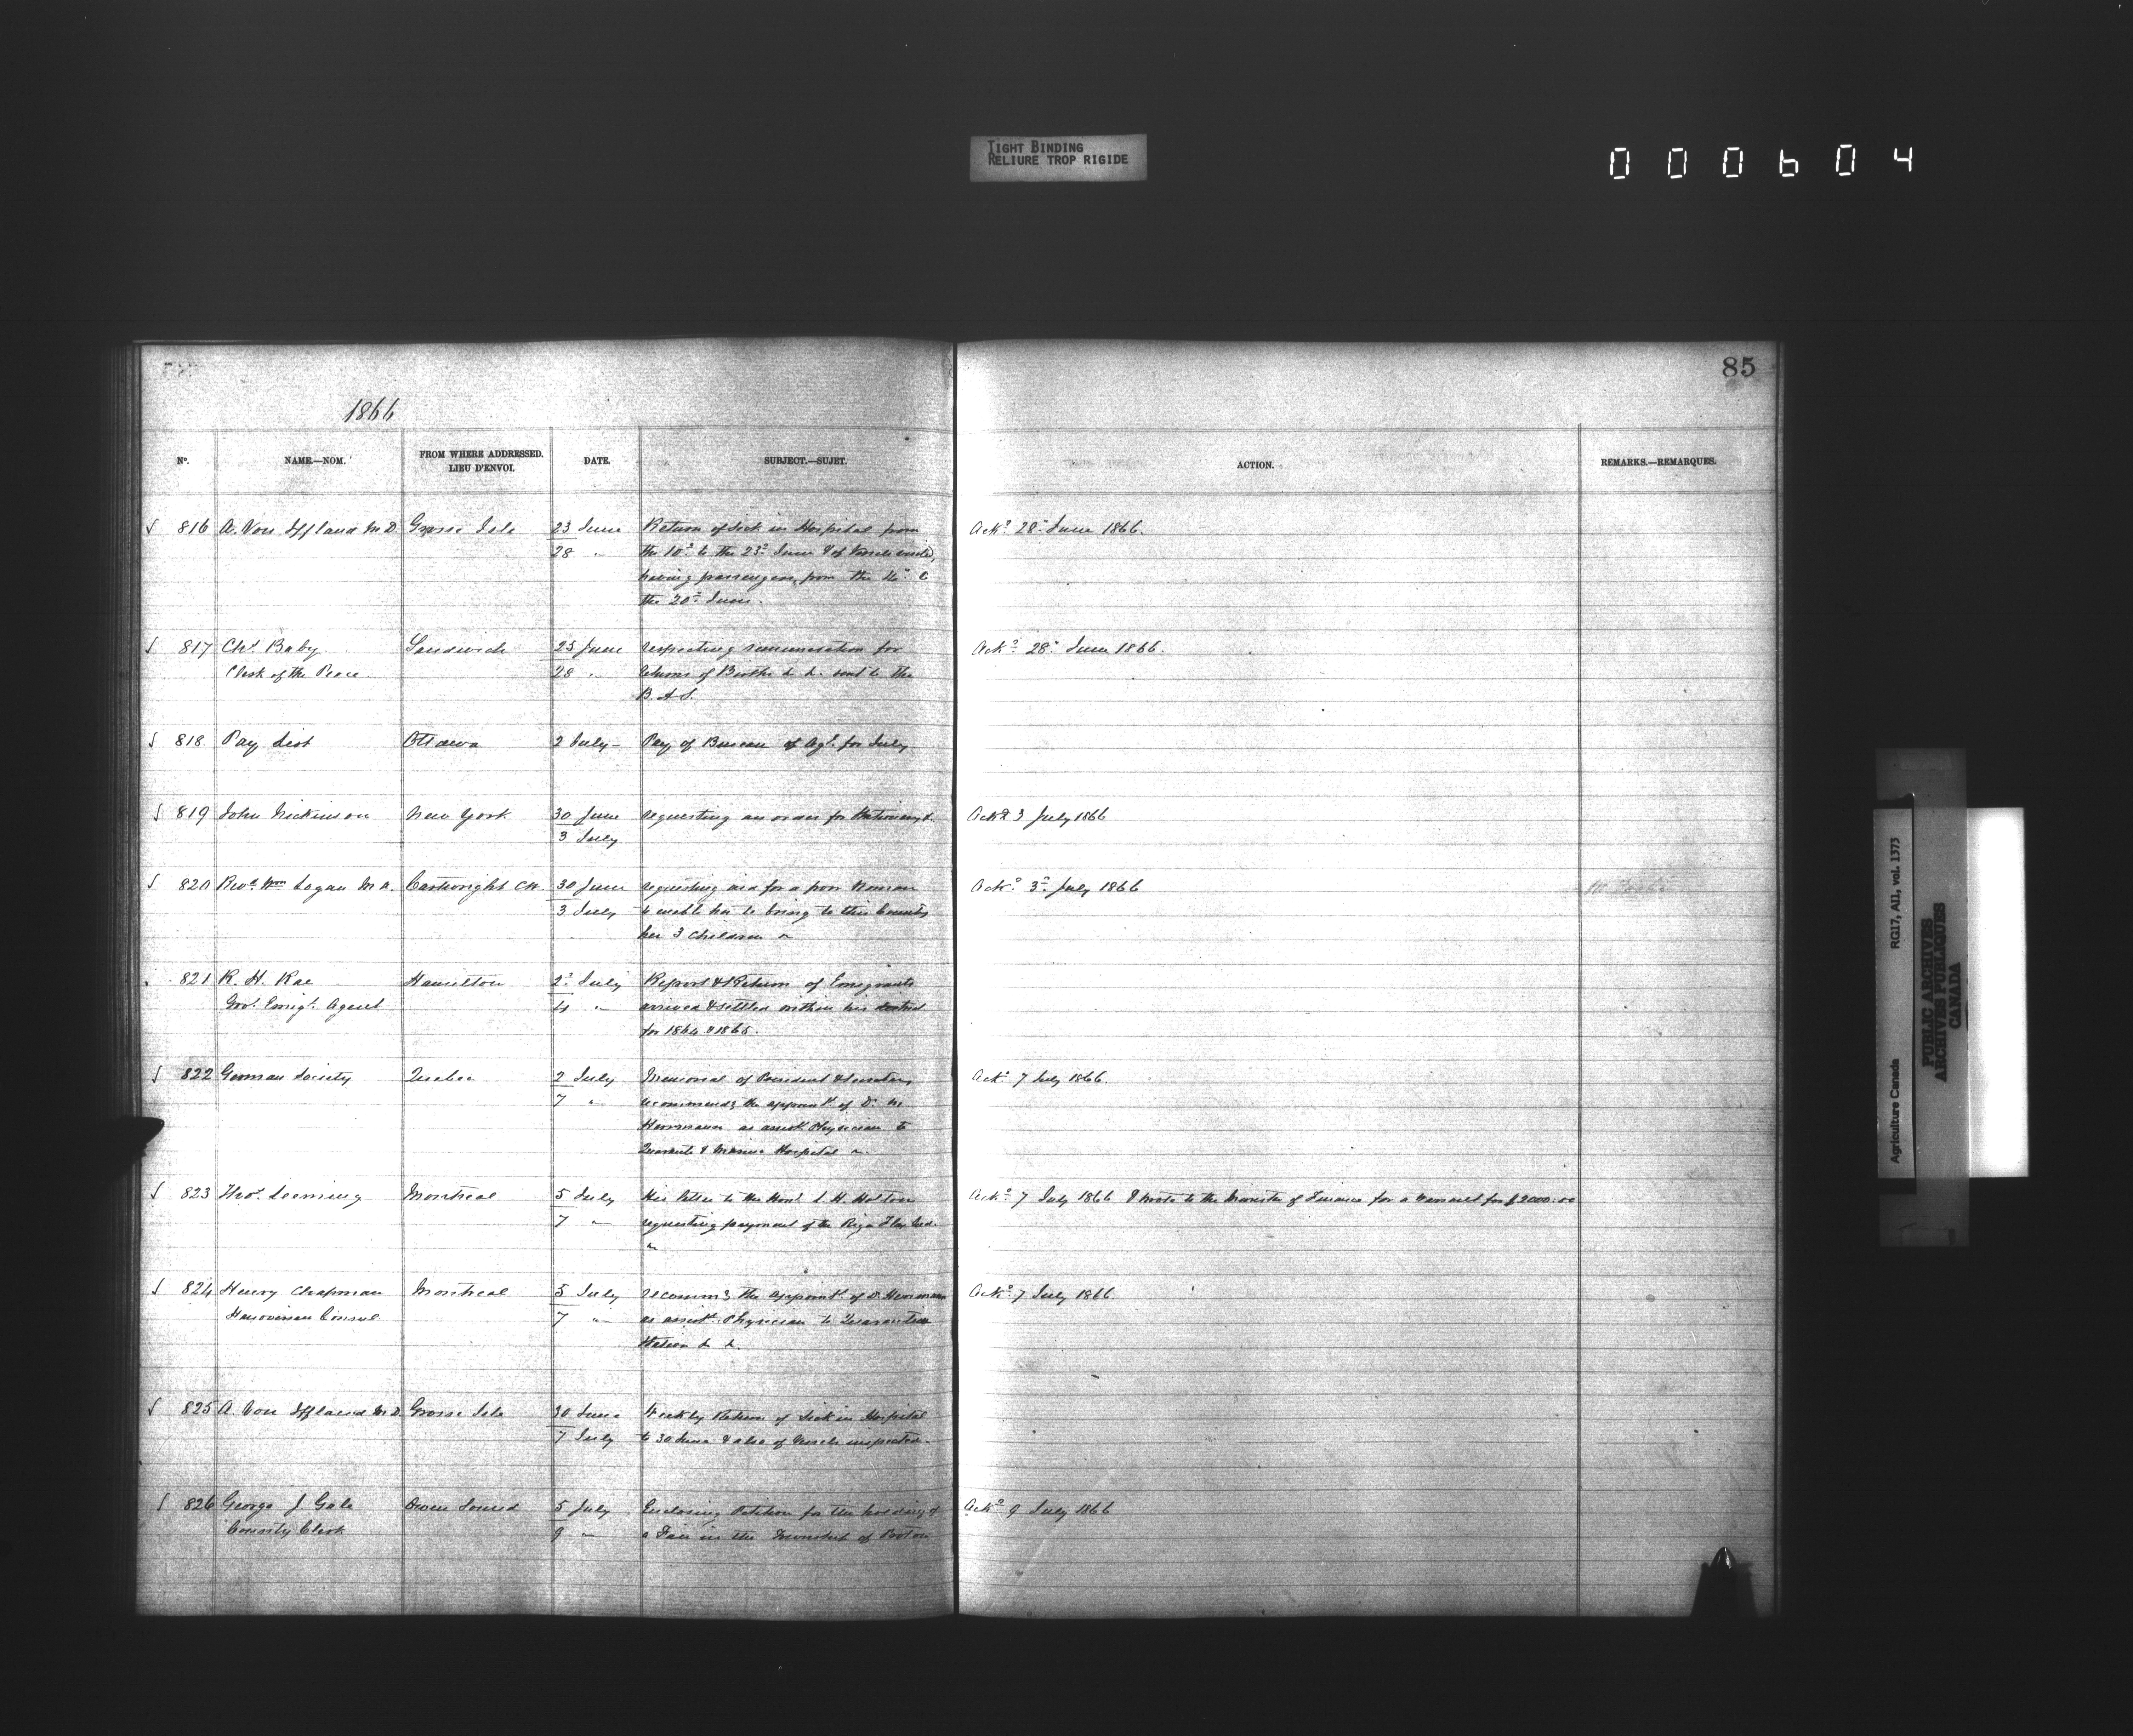 TIGHT BINDING
RELIURE TROP RIGIDE
000604
85
1866
No.
NAME.—NOM.
FROM WHERE ADDRESSED.
LIEU D'ENVOI.
DATE.
SUBJECT.—SUJET.
ACTION.
REMARKS.—REMARQUES.
816 A. Von Iffland M.D. Grosse Isle 23 June Return of Sick in Hospital from Ackd 28th June 1866.
28 " the to the 23d June & of Vessels
having passengers from the
the 20th June.
817 Chs. Baby Sandwich 25 June respecting remuneration for Ackd 28th June 1866.
Clerk of the Peace 28 " returns of Births &c &c. sent to the
B. A. S.
818 Pay List Ottawa 2 July Pay of Bureau of Agl. for July
819 John Nickinson New York 30 June requesting an order for Stationery &c. Ackd 3 July 1866
3 July
820 Revd. Wm Logan M.A. Cartwright C.W. 30 June requesting aid for a poor Woman Ackd 3d July 1866
3 July to enable her to bring to this Country
her 3 children
821 R. H. Rae Hamilton 2d July Report & Return of Emigrants
Govt. Emigt. Agent 4 " arrived & settled within his district
for 1864 & 1865.
822 German Society Quebec 2 July Memorial of President & Secretary Ackd 7 July 1866.
7 " recommendg the appointt of Dr.
Herrmann as assistt Physician to
& Marine Hospital
823 Thos. Leeming Montreal 5 July His letter to the Honl. L. H. Holton Ackd 7 July 1866 & wrote to the Minister of Finance for a Warrant for $2000.00
7 " requesting payment of the Riga Flax Seed
824 Henry Chapman Montreal 5 July recommg the appointt of Dr. Herrmann Ackd 7 July 1866
Hanoverian Consul 7 " as assistt Physician to Quarantine
Station &c &c.
825 A. Von Iffland M.D. Grosse Isle 30 June Weekly Return of Sick in Hospital
7 July to 30 June & also of Vessels inspected.
826 George J. Gale Owen Sound 5 July Enclosing Petition for the holding of Ackd 9 July 1866
County Clerk 9 " a Fair in the Township of Proton
Agriculture Canada RG17, AII, vol. 1373
PUBLIC ARCHIVES
ARCHIVES PUBLIQUES
CANADA